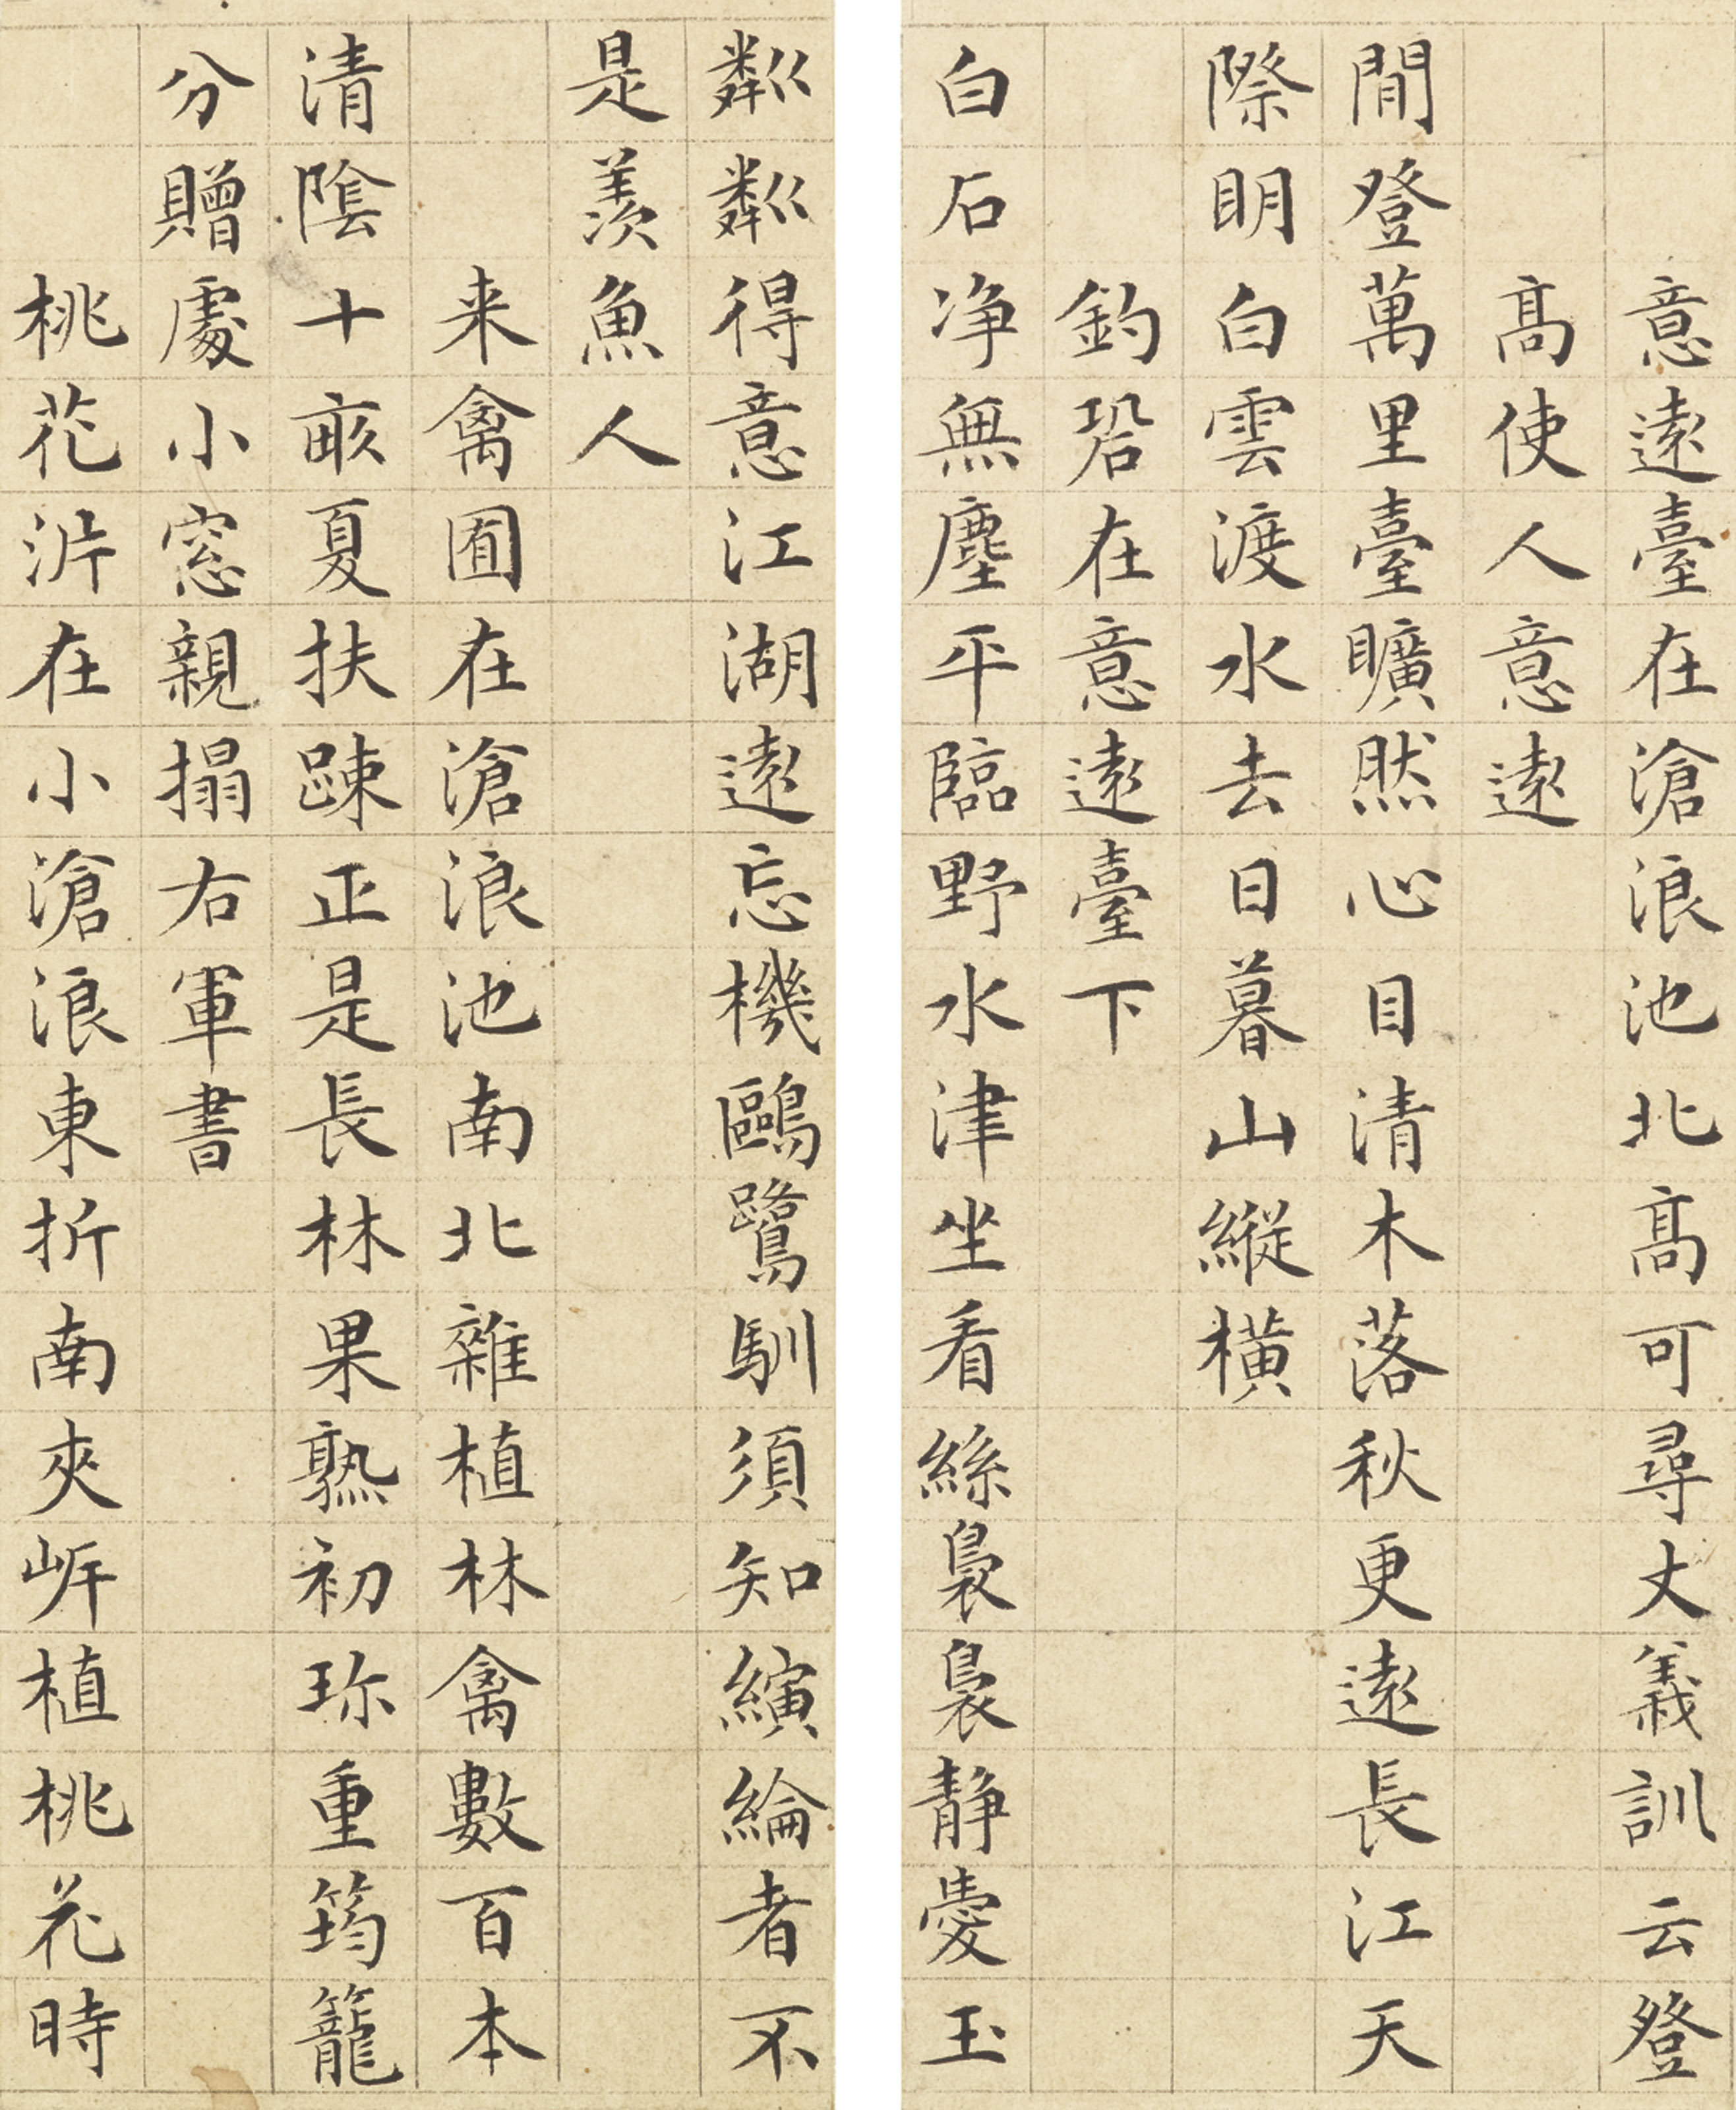 意遠臺在滄浪池北高可尋丈義訓云登
高使人意遠
閒登萬里臺曠然心目清木落秋更遠長江天
際明白雲渡水去日暮山縱橫
釣䂬在意遠臺下
白石净無塵平臨野水津坐看絲裊裊静愛玉
粼粼得意江湖遠忘機鷗鷺馴須知縯綸者不
是羨魚人
来禽囿在滄浪池南北雜植林禽數百本
清陰十畝夏扶踈正是長林果熟初珎重筠籠
分贈處小窓親搨右軍書
桃花沜在小滄浪東折南夾岸植桃花時